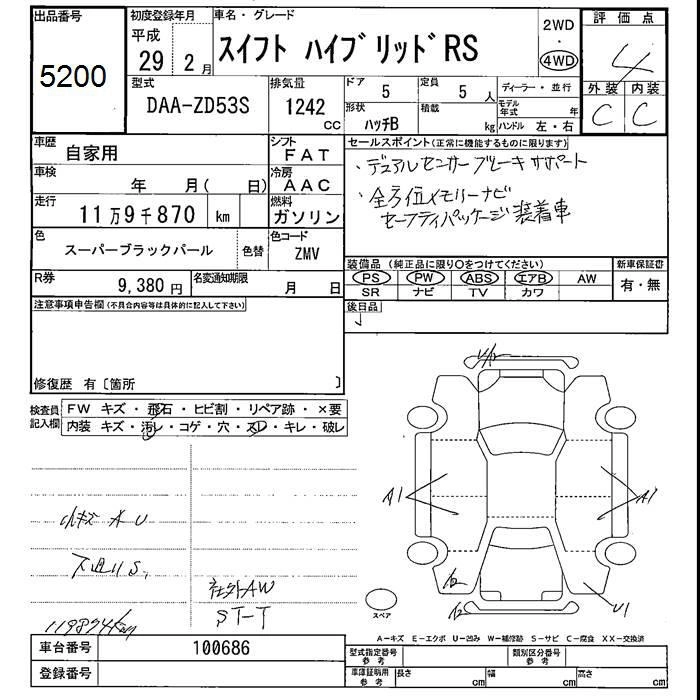 出品番号
5200
初度登録年月
平成
29 2月
車名・グレード
スイフト ハイブリッド RS
2WD
4WD
評価点
4
外装 内装
C C
型式
DAA-ZD53S
排気量
1242
CC
ドア
5
定員
5 人
形状
ハッチB
積載
kg
ディーラー・並行
モデル年式 年
ハンドル 左・右
車歴
自家用
シフト
FAT
車検
年 月( 日)
冷房
AAC
走行
11万9千870 km
燃料
ガソリン
色
スーパーブラックパール
色替
色コード
ZMV
R券
9,380 円
名変通知期限
月 日
セールスポイント(正常に機能するものに限ります)
・デュアルセンサーブレーキサポート
・全方位メモリーナビ
セーフティパッケージ装着車
装備品 (純正品に限り○をつけてください)
PS PW ABS エアB AW
SR ナビ TV カワ
新車保証書
有・無
後日品
注意事項申告欄(不具合内容等は具体的に記入して下さい)
修復歴 有〔箇所 〕
検査員記入欄
FW キズ・飛石・ヒビ割・リペア跡・×要
内装 キズ・汚レ・コゲ・穴・スレ・キレ・破レ
小キズ A U
下廻り S,
社外AW
ST-T
119874km
A1
A1
U1
スペア
A-キズ E-エクボ U-凹み W-補修跡 S-サビ C-腐食 XX-交換済
車台番号
100686
登録番号
型式指定番号
参考
類別区分番号
参考
車庫証明用
参考
長さ cm
幅 cm
高さ cm